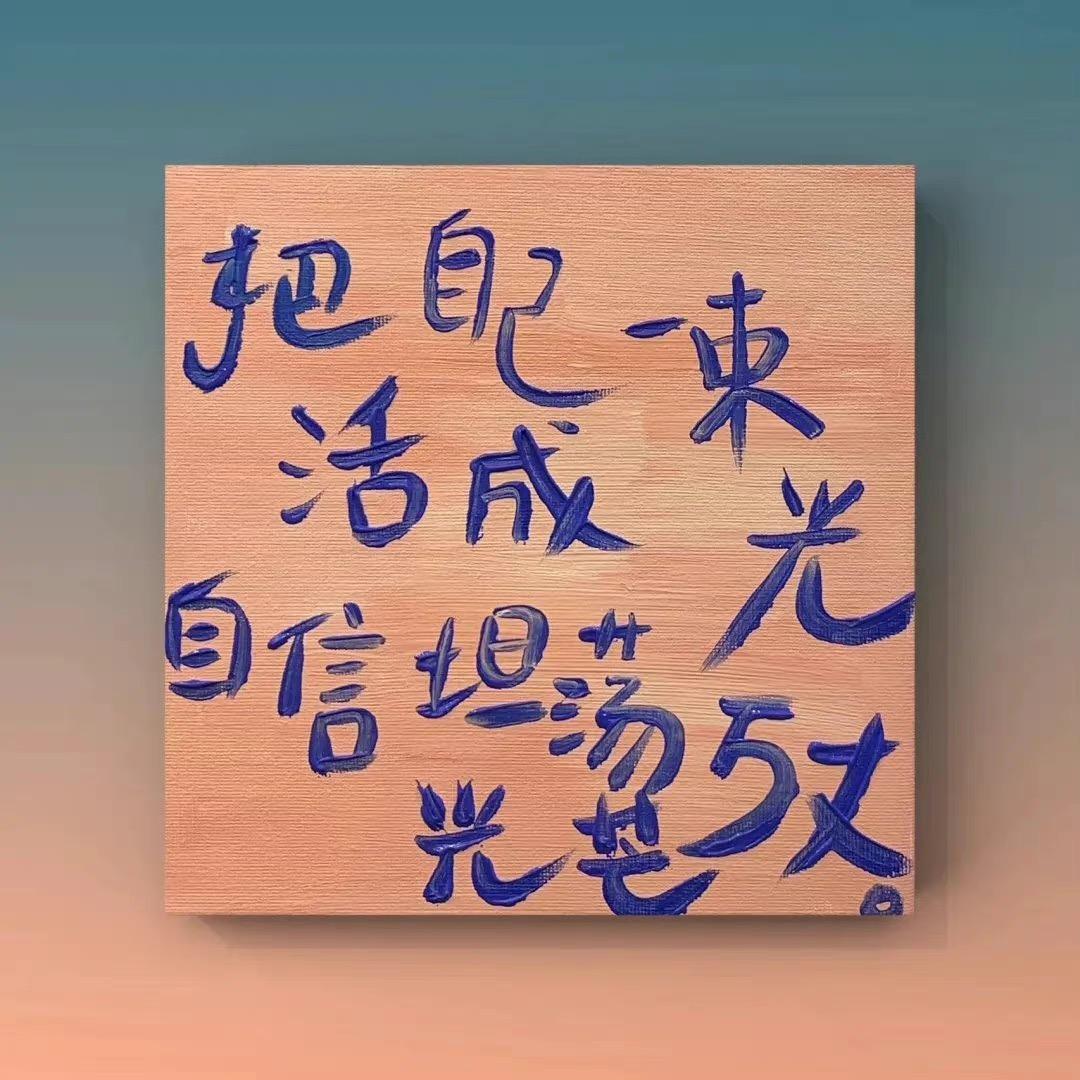 把自己
活成
一束
光
自信坦荡
光芒万丈。